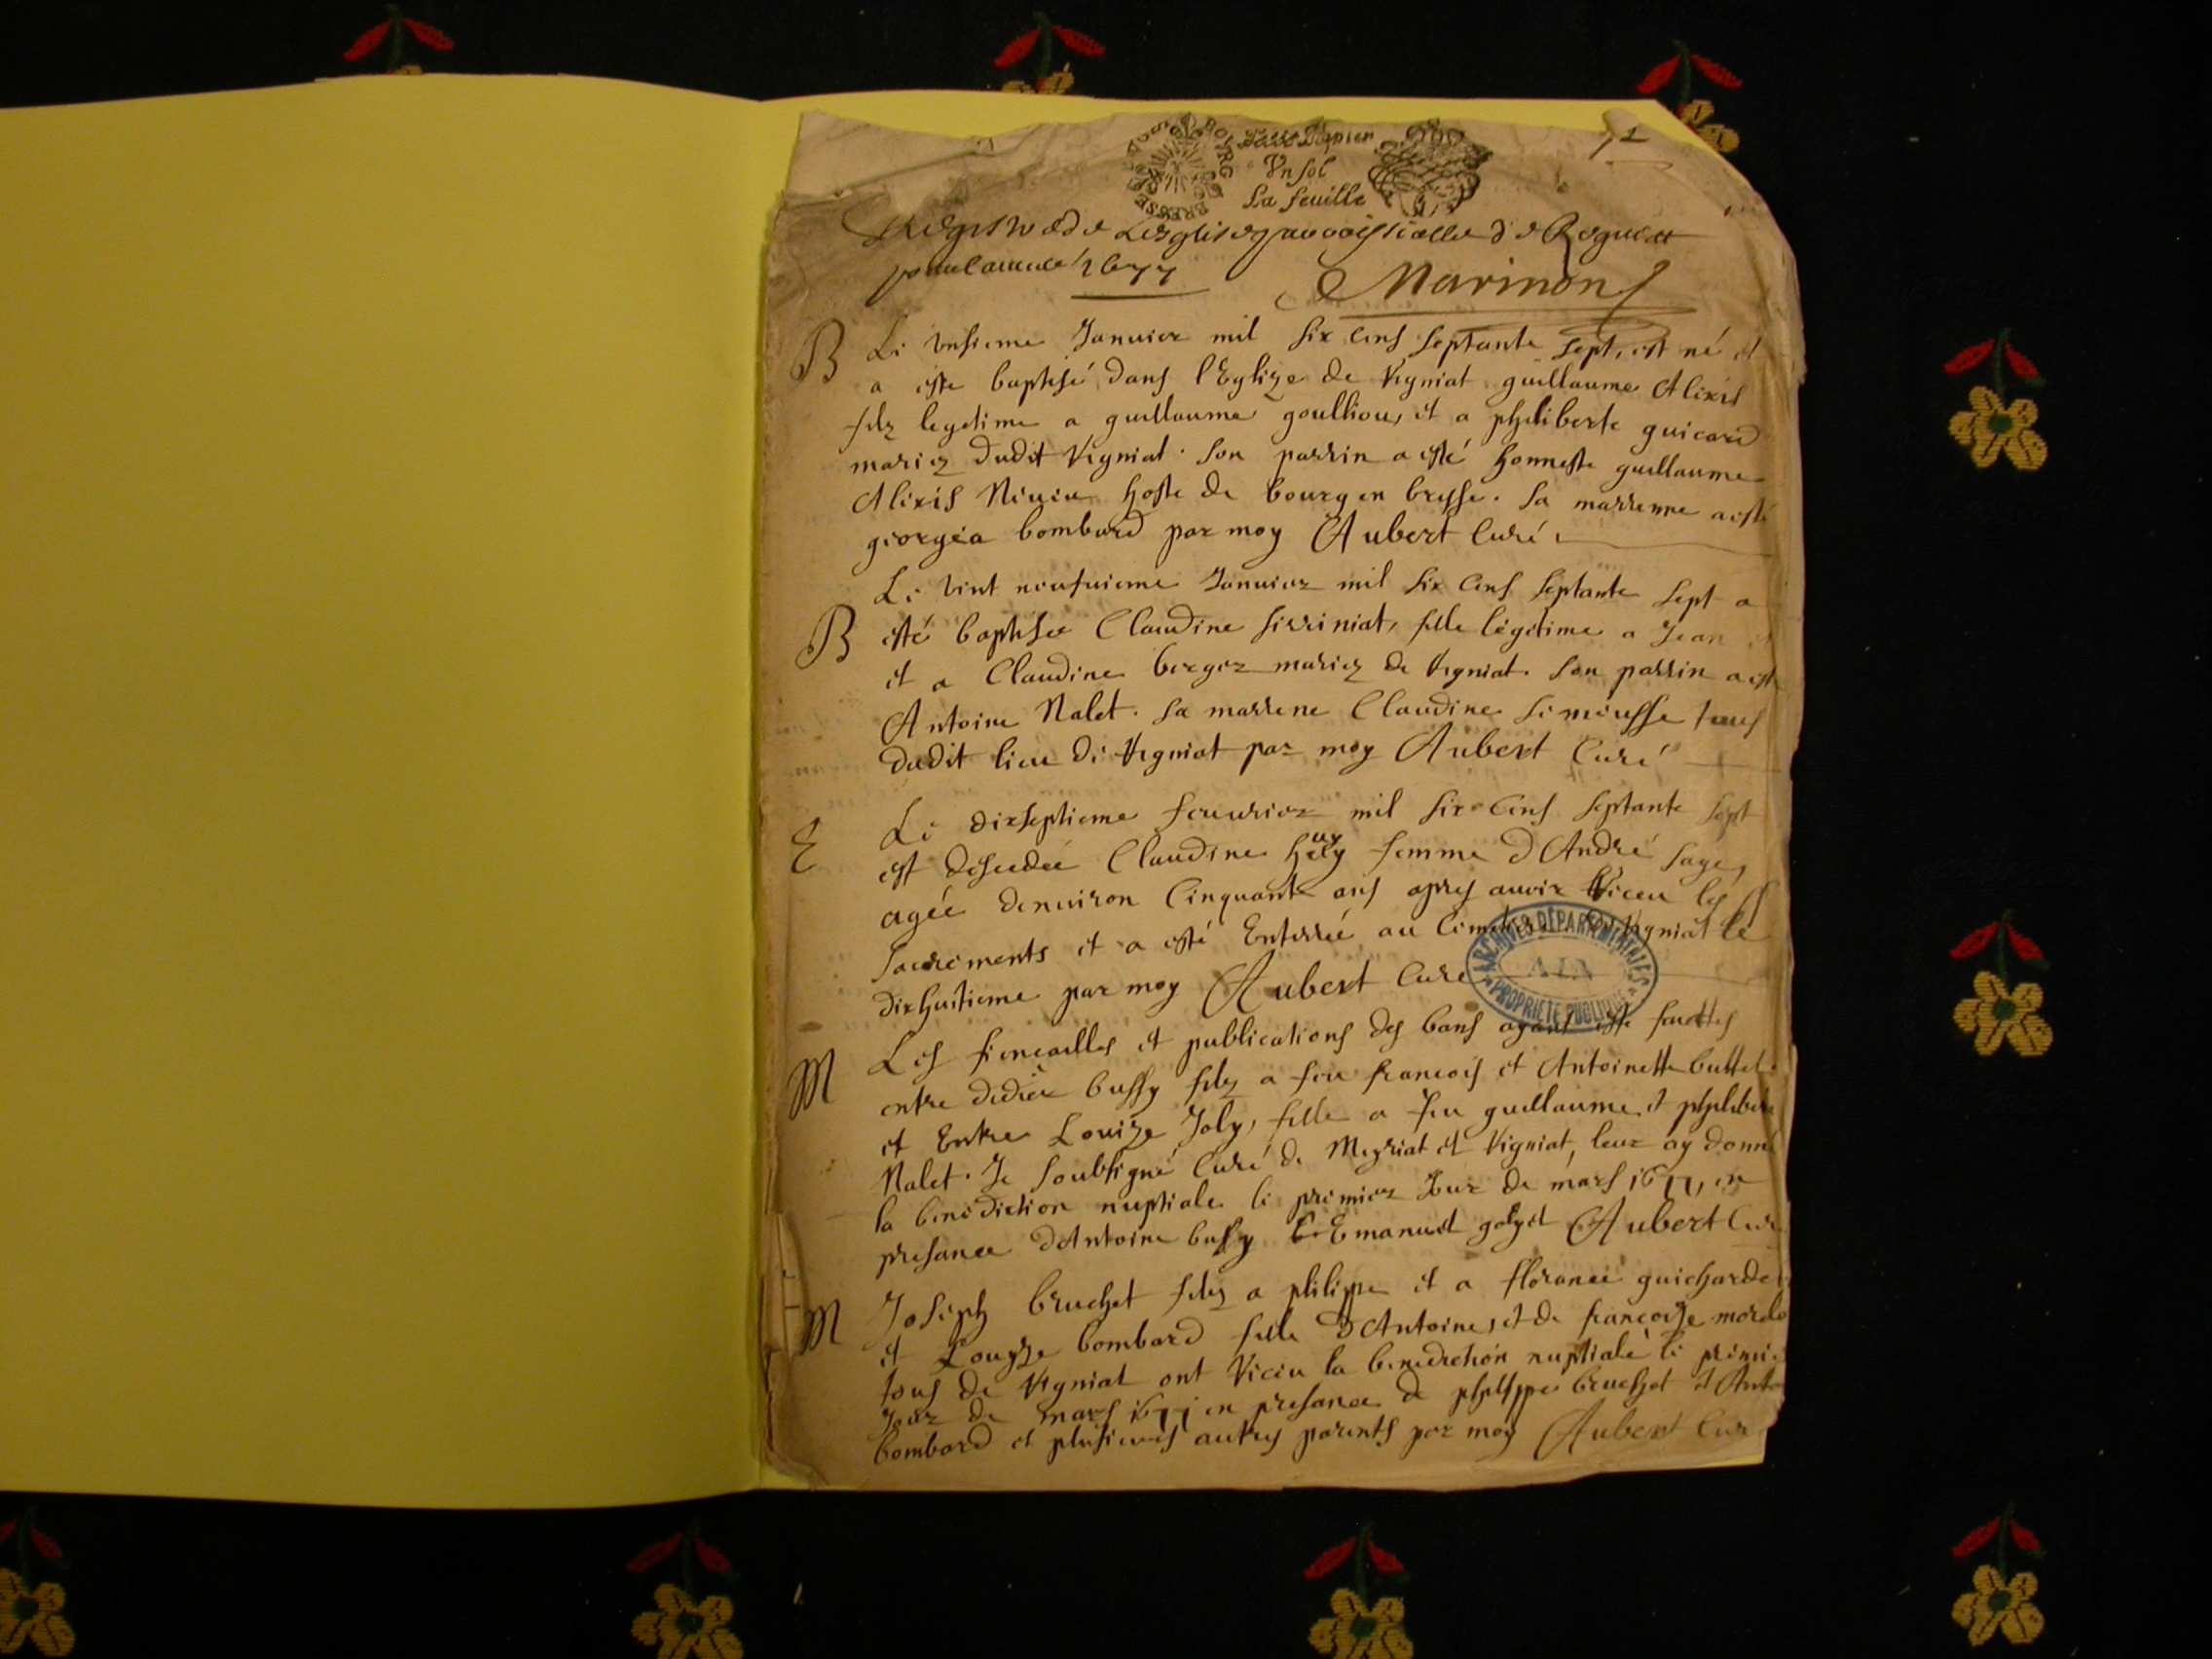 1
BOURG BRESSE
Papier
Un sol
La feuille
Registre de Lesglise parroissialle de Regniat
pour l'année 1677 Marinon
B Le unsieme Januier mil six cens septante sept, est né et
a esté baptisé dans l'Eglize de Rigniat guillaume Alixis
filz legetime a guillaume goullion, et a philiberte guicard
mariez dudit Rigniat. Son parrin a esté honneste guillaume
Alixis Niuiere hoste de bourg en bresse. Sa marrenne a esté
georgea bombard par moy Aubert Curé.
B Le vint neufuieme Januier mil six Cens septante sept a
esté baptisée Claudine sirriniat, fille légetime a Jean
et a Claudine berger mariez de Rigniat. Son parrin a esté
Antoine Nalet. Sa marrene Claudine tous
dudit lieu de Rigniat par moy Aubert Curé
E Le dixseptieme feuurier mil six Cens septante sept
est desedée Claudine femme d'André sage,
agée denuiron Cinquante ans apres auoir Riceu les
sacrements et a esté Enterrée au Cimetiere de Rigniat le
dixhuitieme par moy Aubert Curé
ARCHIVES DÉPARTEMENTALES
AIN
PROPRIÉTÉ PUBLIQUE
M Les fiencailles et publications des bans ayans esté faittes
entre didier bussy filz a feu francois et Antoinette buttet
et Entre Louize Joly, fille a feu guillaume et philiberte
Nalet. Je soubsigné Curé de Meyriat et Rigniat, leur ay donné
la benediction nuptiale le premier Jour de mars 1677, en
presance d'Antoine bussy Emanuel golyet Aubert Curé
M Joseph bruchet filz a philippe et a florance guicharde
et Louyze bombard fille d'Antoine, et de francoize
tous de Rigniat ont Riceu la benediction nuptiale le
Jour de mars 1677 en presance de philippe bruchet et
bombard et plusieurs autres parents par moy Aubert Curé